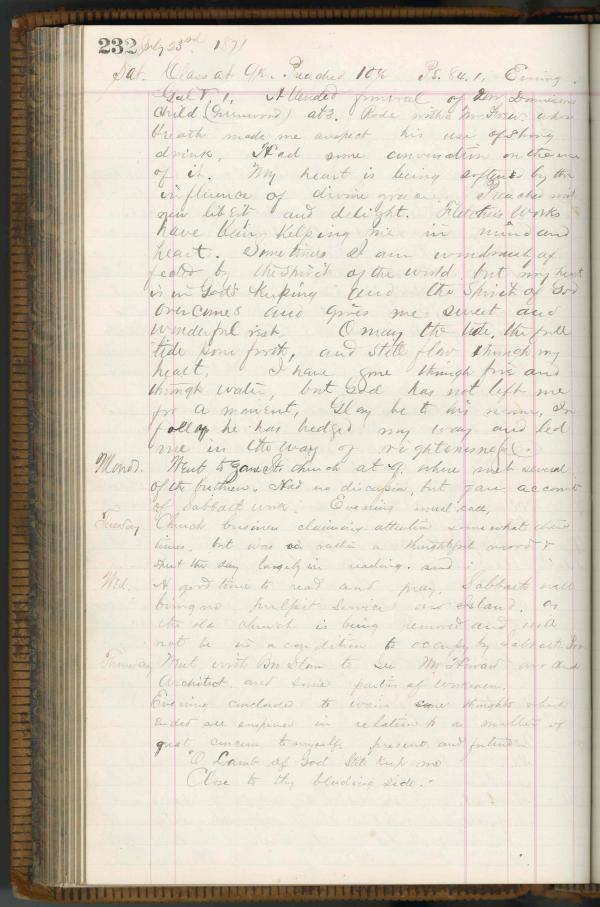 232 July 23rd 1871
Sat. Class at 9½. Preached 10½ Ps. 84.1, Evening.
Gal V, 1, Attended funeral of
child (Greenwood) at 3. Rode with a Mr whose
breath made me suspect his use of strong
drink. Had some conversation on the use
of it. My heart is being softened by the
influence of divine grace. Preached with
new liberty and delight. Fletcher's Works
have been helping me in mind and
heart. Sometimes I am wondrously af
fected by the spirit of the world but my heart
is in God's keeping and the Spirit of God
overcomes and gives me sweet and
wonderful rest. O may the tide, the full
tide pour forth, and still flow through my
heart, I have gone through fire and
through water, but God has not left me
for a moment, Glory be to his name,
he has hedged my way and led
me in the way of righteousness.
Mond. Went to church at 9. where met several
of the brethren. Had no discussion, but gave account
of Sabbath work. Evening
Tuesday Church business claiming attention somewhat
times, but was in rather a thoughtful mood &
spent the day largely in reading. and
Wed. A good time to read and pray. Sabbath will
bring no pulpit service on Island, as
the old church is being removed and will
not be in a condition to occupy by Sabbath.
Thursday Went with Bro to see Mr our
Architect, and some parties of workmen.
Evening concluded to some thoughts which
in relation to a matter of
great concern to myself present and future
"O Lamb of God still keep me
Close to thy bleeding side."